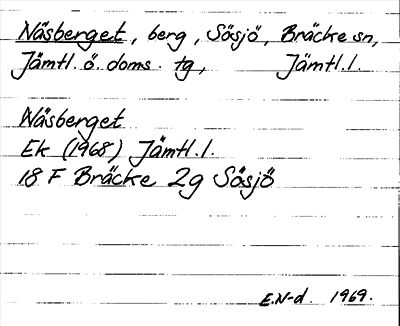 Näsberget, berg, Sösjö, Bräcke sn,
Jämtl. ö. doms. tg, Jämtl. l.
Näsberget
Ek (1968) Jämtl. l.
18 F Bräcke 2g Sösjö
E.N-d. 1969.